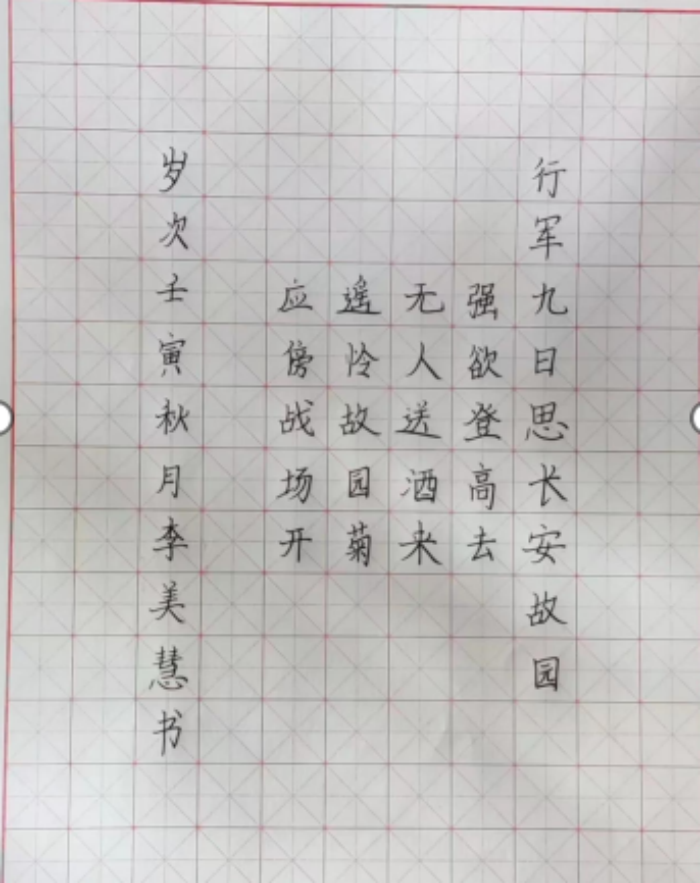 行军九日思长安故园
强欲登高去
无人送酒来
遥怜故园菊
应傍战场开
岁次壬寅秋月李美慧书